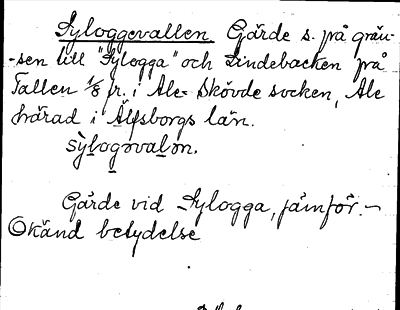 Syloggevallen Gärde s. på grän-
-sen till "Sylogga" och Lindebacken på
Tallen 1/8 fr. i Ale-Skövde socken, Ale
härad i Älfsborgs län.
sylogəvalən.
Gärde vid Sylogga, jämför. -
Okänd betydelse